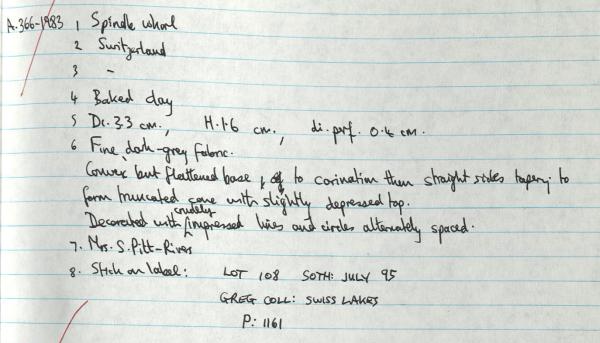 A.366-1983 1 Spindle whorl
2 Switzerland
3 -
4 Baked clay
5 Di. 3.3 cm., H. 1.6 cm., di. perf. 0.4 cm.
6 Fine, dark-grey fabric.
Convex but flattened base, to carination then straight sides tapering to
form truncated cone with slightly depressed top.
Decorated with crudely impressed lines and circles alternately spaced.
7. Mrs. S. Pitt-Rivers
8. Stick on label: LOT 108 SOTH: JULY 95
GREG COLL: SWISS LAKES
P: 1161